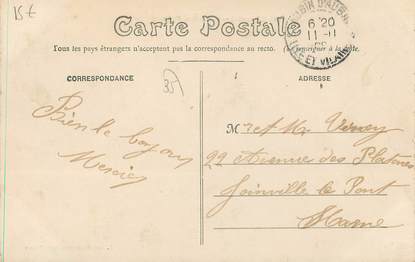 15€
Carte Postale
Tous les pays étrangers n'acceptent pas la correspondance au recto. (Se renseigner à la poste.
6 20
11-11
ILLE ET VILAINE
CORRESPONDANCE
35
ADRESSE
Bien le bonjour
Mercier
M r et Me
22 Avenue des Platanes
Joinville le Pont